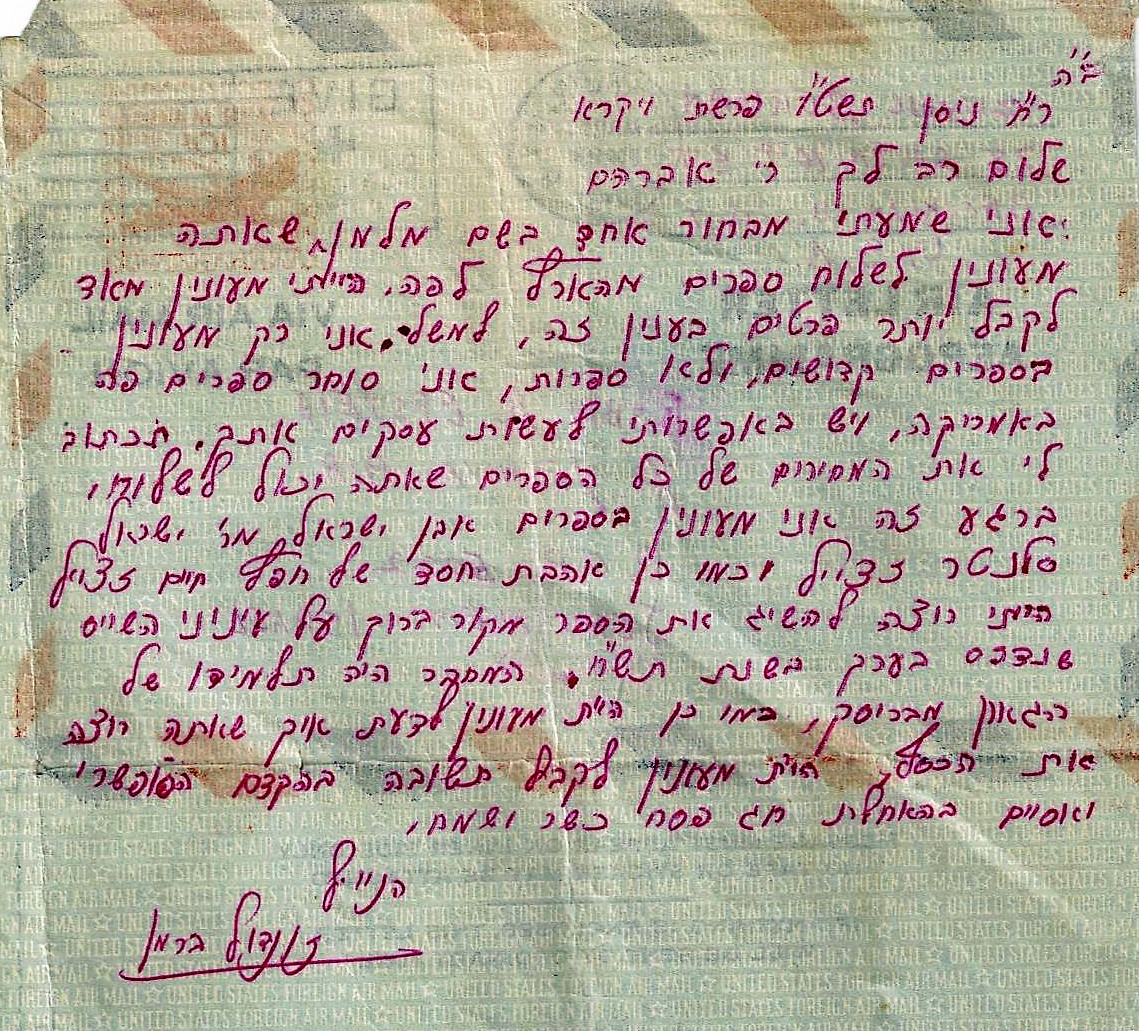 ב"ה
ר"ח ניסן תשט"ו פרשת ויקרא
שלום רב לך ר' אברהם
אני שמעתי מבחור אחד בשם מלמן, שאתה
מעונין לשלוח ספרים מהארץ לפה. הייתי מעונין מאד
לקבל יותר פרטים בענין זה, למשל. אני רק מעונין
בספרים קדושים, ולא ספרות, אני סוחר ספרים פה
באמריקה, ויש באפשרותי לעשות עסקים אתך. תכתוב
לי את המחירים של כל הספרים שאתה יכול לשלוח,
ברגע זה אני מעונין בספרים אבן ישראל, מר' ישראל
סלנטר זצ"ל וכמו כן אהבת חסד של חפץ חיים זצ"ל
הייתי רוצה להשיג את הספר מקור ברוך על עינוני השייס
שנדפס בערך בשנת תש"ח. המחבר היה תלמידו של
הגאון מבריסק, כמו כן היית מעונין לדעת איך שאתה רוצה
את הכסף, היית מעונין לקבל תשובה בהקדם האפשרי
ואסיים בהאחלת חג פסח כשר ושמח,
הנ"ל
זונדל ברמן
UNITED STATES FOREIGN AIR MAIL